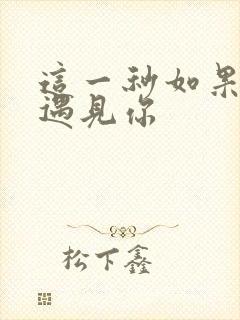 這一秒如果
遇見你
松下鑫